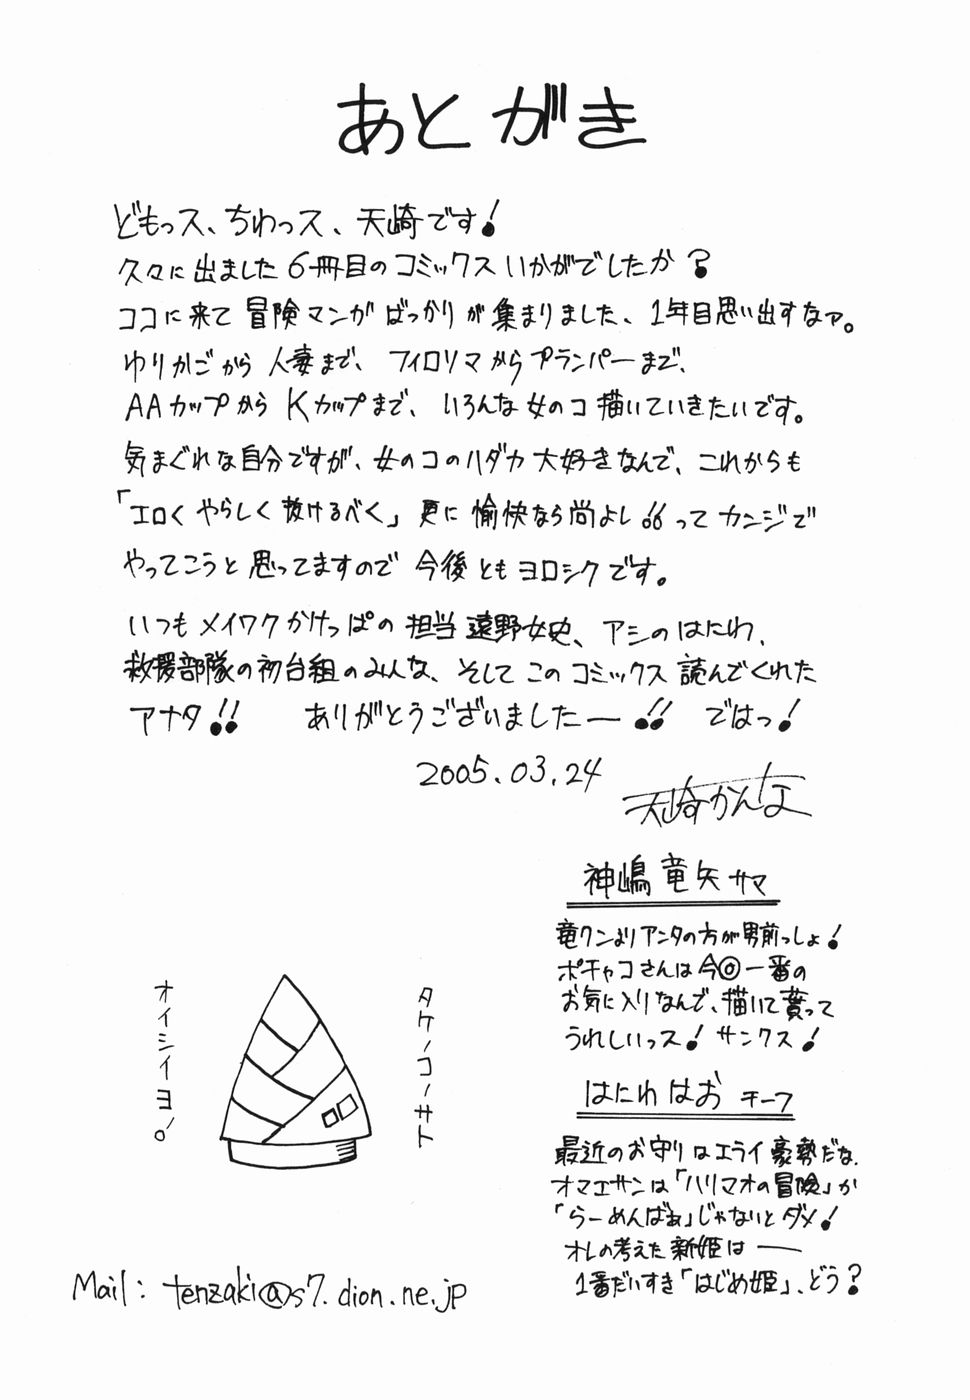 あとがき
どもっス、ちわっス、天崎です!
久々に出ました6冊目のコミックスいかがでしたか?
ココに来て冒険マンガばっかりが集まりました、1年目思い出すなァ。
ゆりかごから人妻まで、フィロリマからプランパーまで、
AAカップからKカップまで、いろんな女のコ描いていきたいです。
気まぐれな自分ですが、女のコのハダカ大好きなんで、これからも
「エロくやらしく抜けるべく」更に愉快なら尚よし!!ってカンジで
やってこうと思ってますので今後ともヨロシクです。
いつもメイワクかけっぱの担当遠野女史、アシのはにわ、
救援部隊の初台組のみんな、そしてこのコミックス読んでくれた
アナタ!! ありがとうございましたー!! ではっ!
2005.03.24
天崎かんな
神嶋竜矢サマ
竜クンよりアンタの方が男前っしょ!
ポチャコさんは今◎一番の
お気に入りなんで、描いて貰って
うれしいっス!サンクス!
はにわはお チーフ
最近のお守りはエライ豪勢だな、
オマエサンは「ハリマオの冒険」か
「らーめんばぁ」じゃないとダメ!
オレの考えた新姫は――
1番だいすき「はじめ姫」、どう?
タケノコノサト
オイシイヨ。
Mail: tenzaki@s7.dion.ne.jp